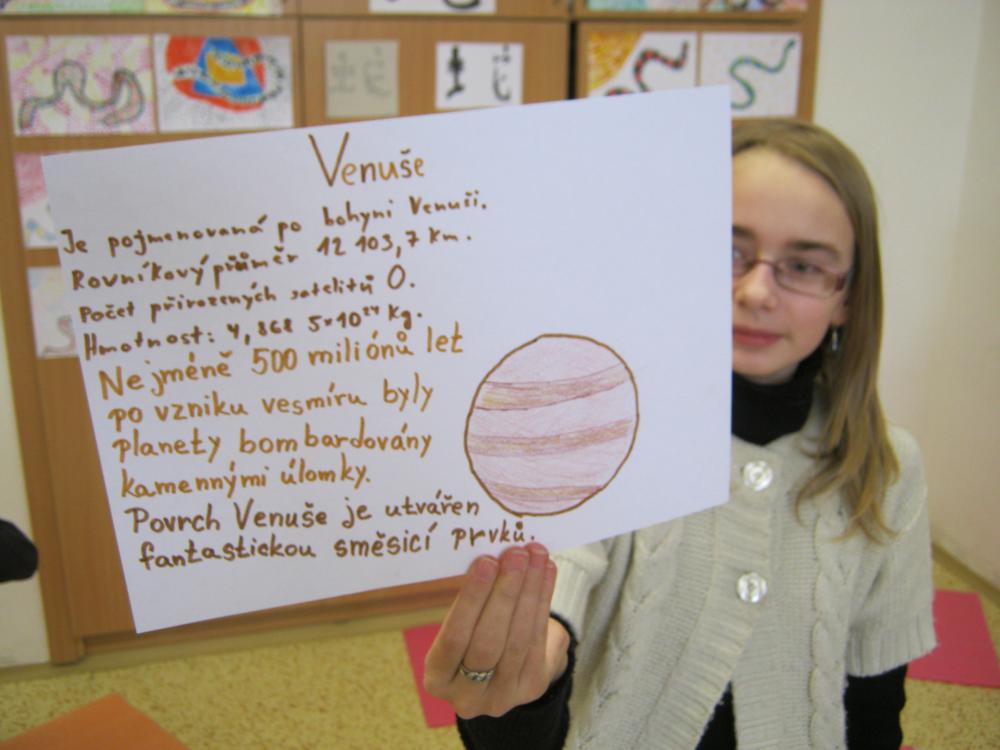 Venuše
Je pojmenovaná po bohyni Venuši.
Rovníkový průměr 12 103,7 km.
Počet přirozených satelitů 0.
Hmotnost: 4,868 5×10²⁴ kg.
Nejméně 500 miliónů let
po vzniku vesmíru byly
planety bombardovány
kamennými úlomky.
Povrch Venuše je utvářen
fantastickou směsicí prvků.